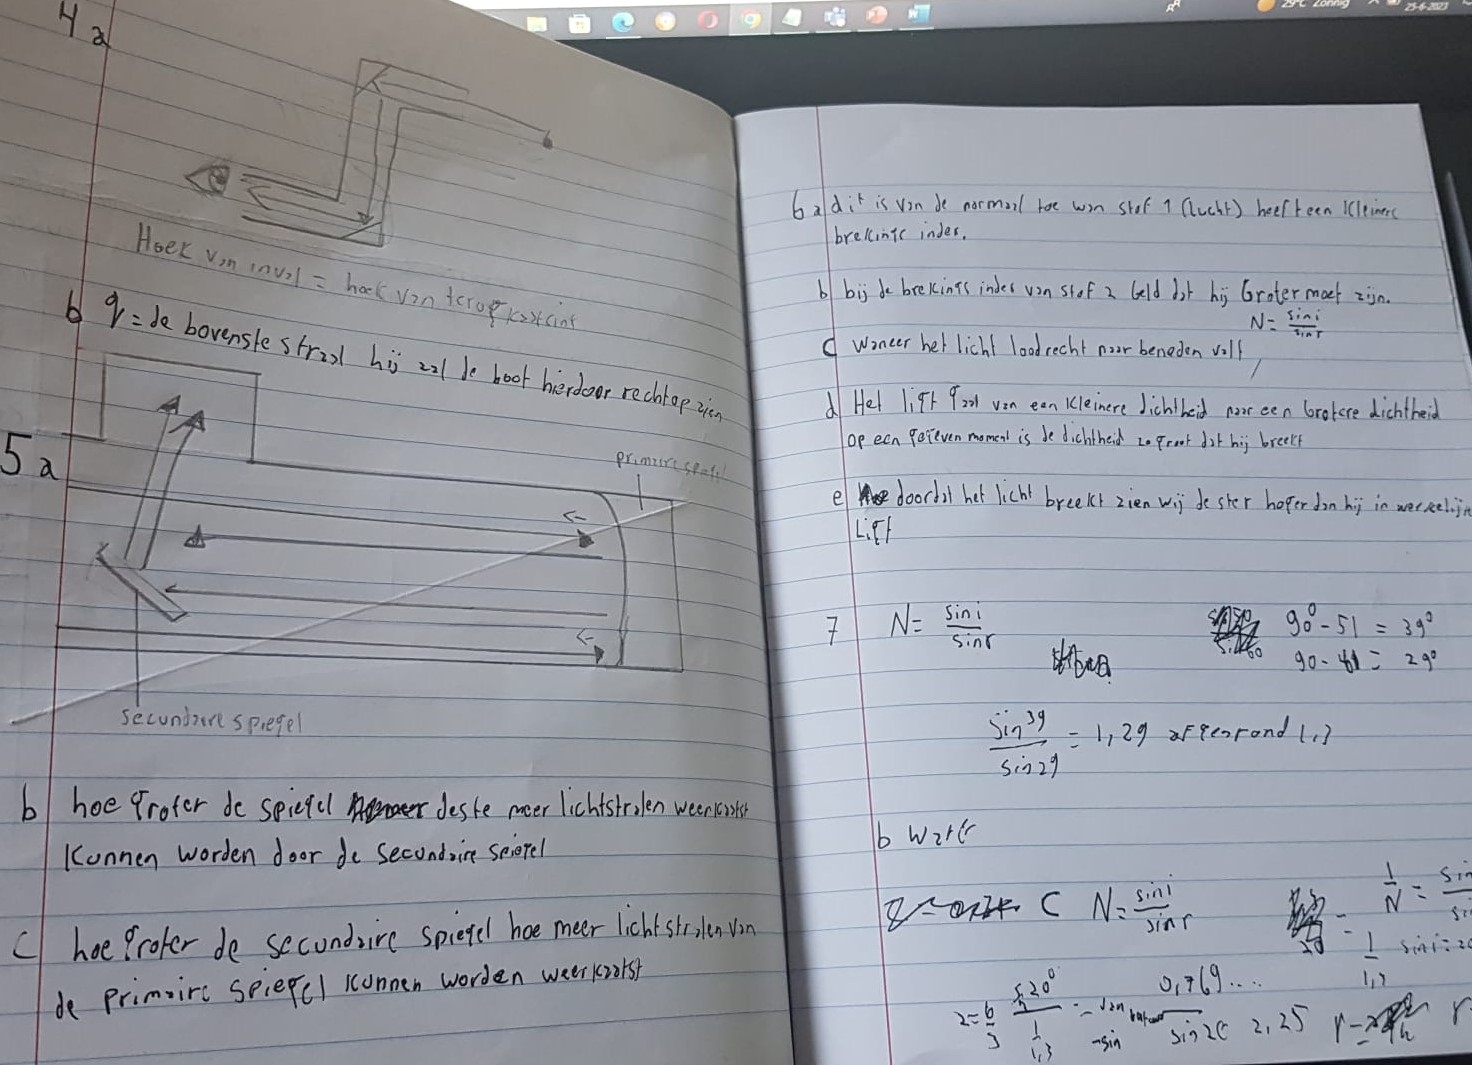 29°C Zonnig
25-6-2023
4 a
Hoek van inval = hoek van terugkaatsing
b q = de bovenste straal hij zal de boot hierdoor rechtop zien
5 a
primaire spegel
secundaire spiegel
b hoe groter de spiegel deste meer lichtstralen weerkaatst
kunnen worden door de secundaire spiegel
c hoe groter de secundaire spiegel hoe meer lichtstralen van
de primaire spiegel kunnen worden weerkaatst
6 a dit is van de normaal toe wan stof 1 (lucht) heeft een kleinere
brekings index.
b bij de brekings index van stof 2 Geld dat hij Groter moet zijn.
N = sin i / sin r
c waneer het licht loodrecht naar beneden valt
d Het ligt gaat van een kleinere dichtheid naar een Grotere dichtheid
op een gegeven moment is de dichtheid zo groot dat hij breekt
e doordat het licht breekt zien wij de ster hoger dan hij in werkelijk
Ligt
7 N = sin i / sin r
90° - 51 = 39°
90 - 61 = 29°
sin 39 / sin 29 = 1,29 afgerond 1,3
b water
c N = sin i / sin r
1/N =
1/1,3
0,769...
sin 20 2,25